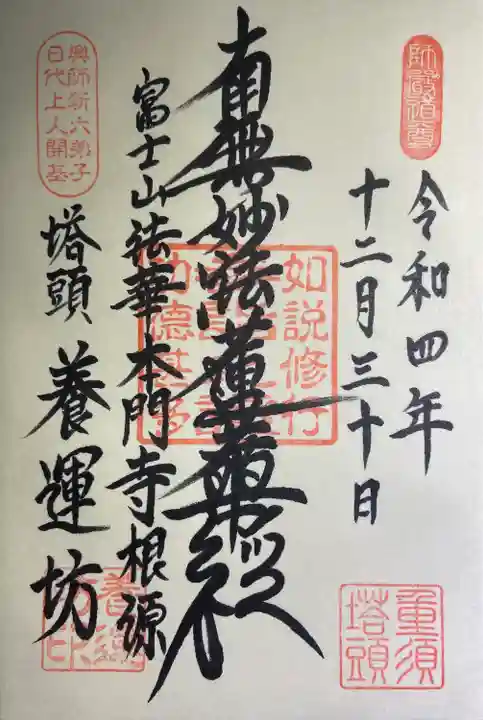 師嚴道尊
令和四年
十二月三十日
重須
塔頭
如説修行
功德甚多
南無妙法蓮華経
富士山法華本門寺根源
興師新六弟子
日代上人開基
塔頭 養運坊